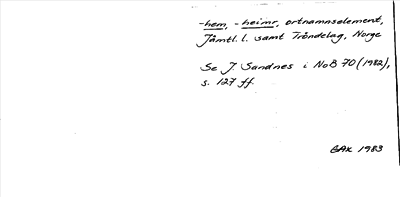 -hem, -heimr, ortnamnselement,
Jämtl. l. samt Tröndelag, Norge
Se J. Sandnes i NoB 70 (1982),
s. 127 ff.
GAK 1983